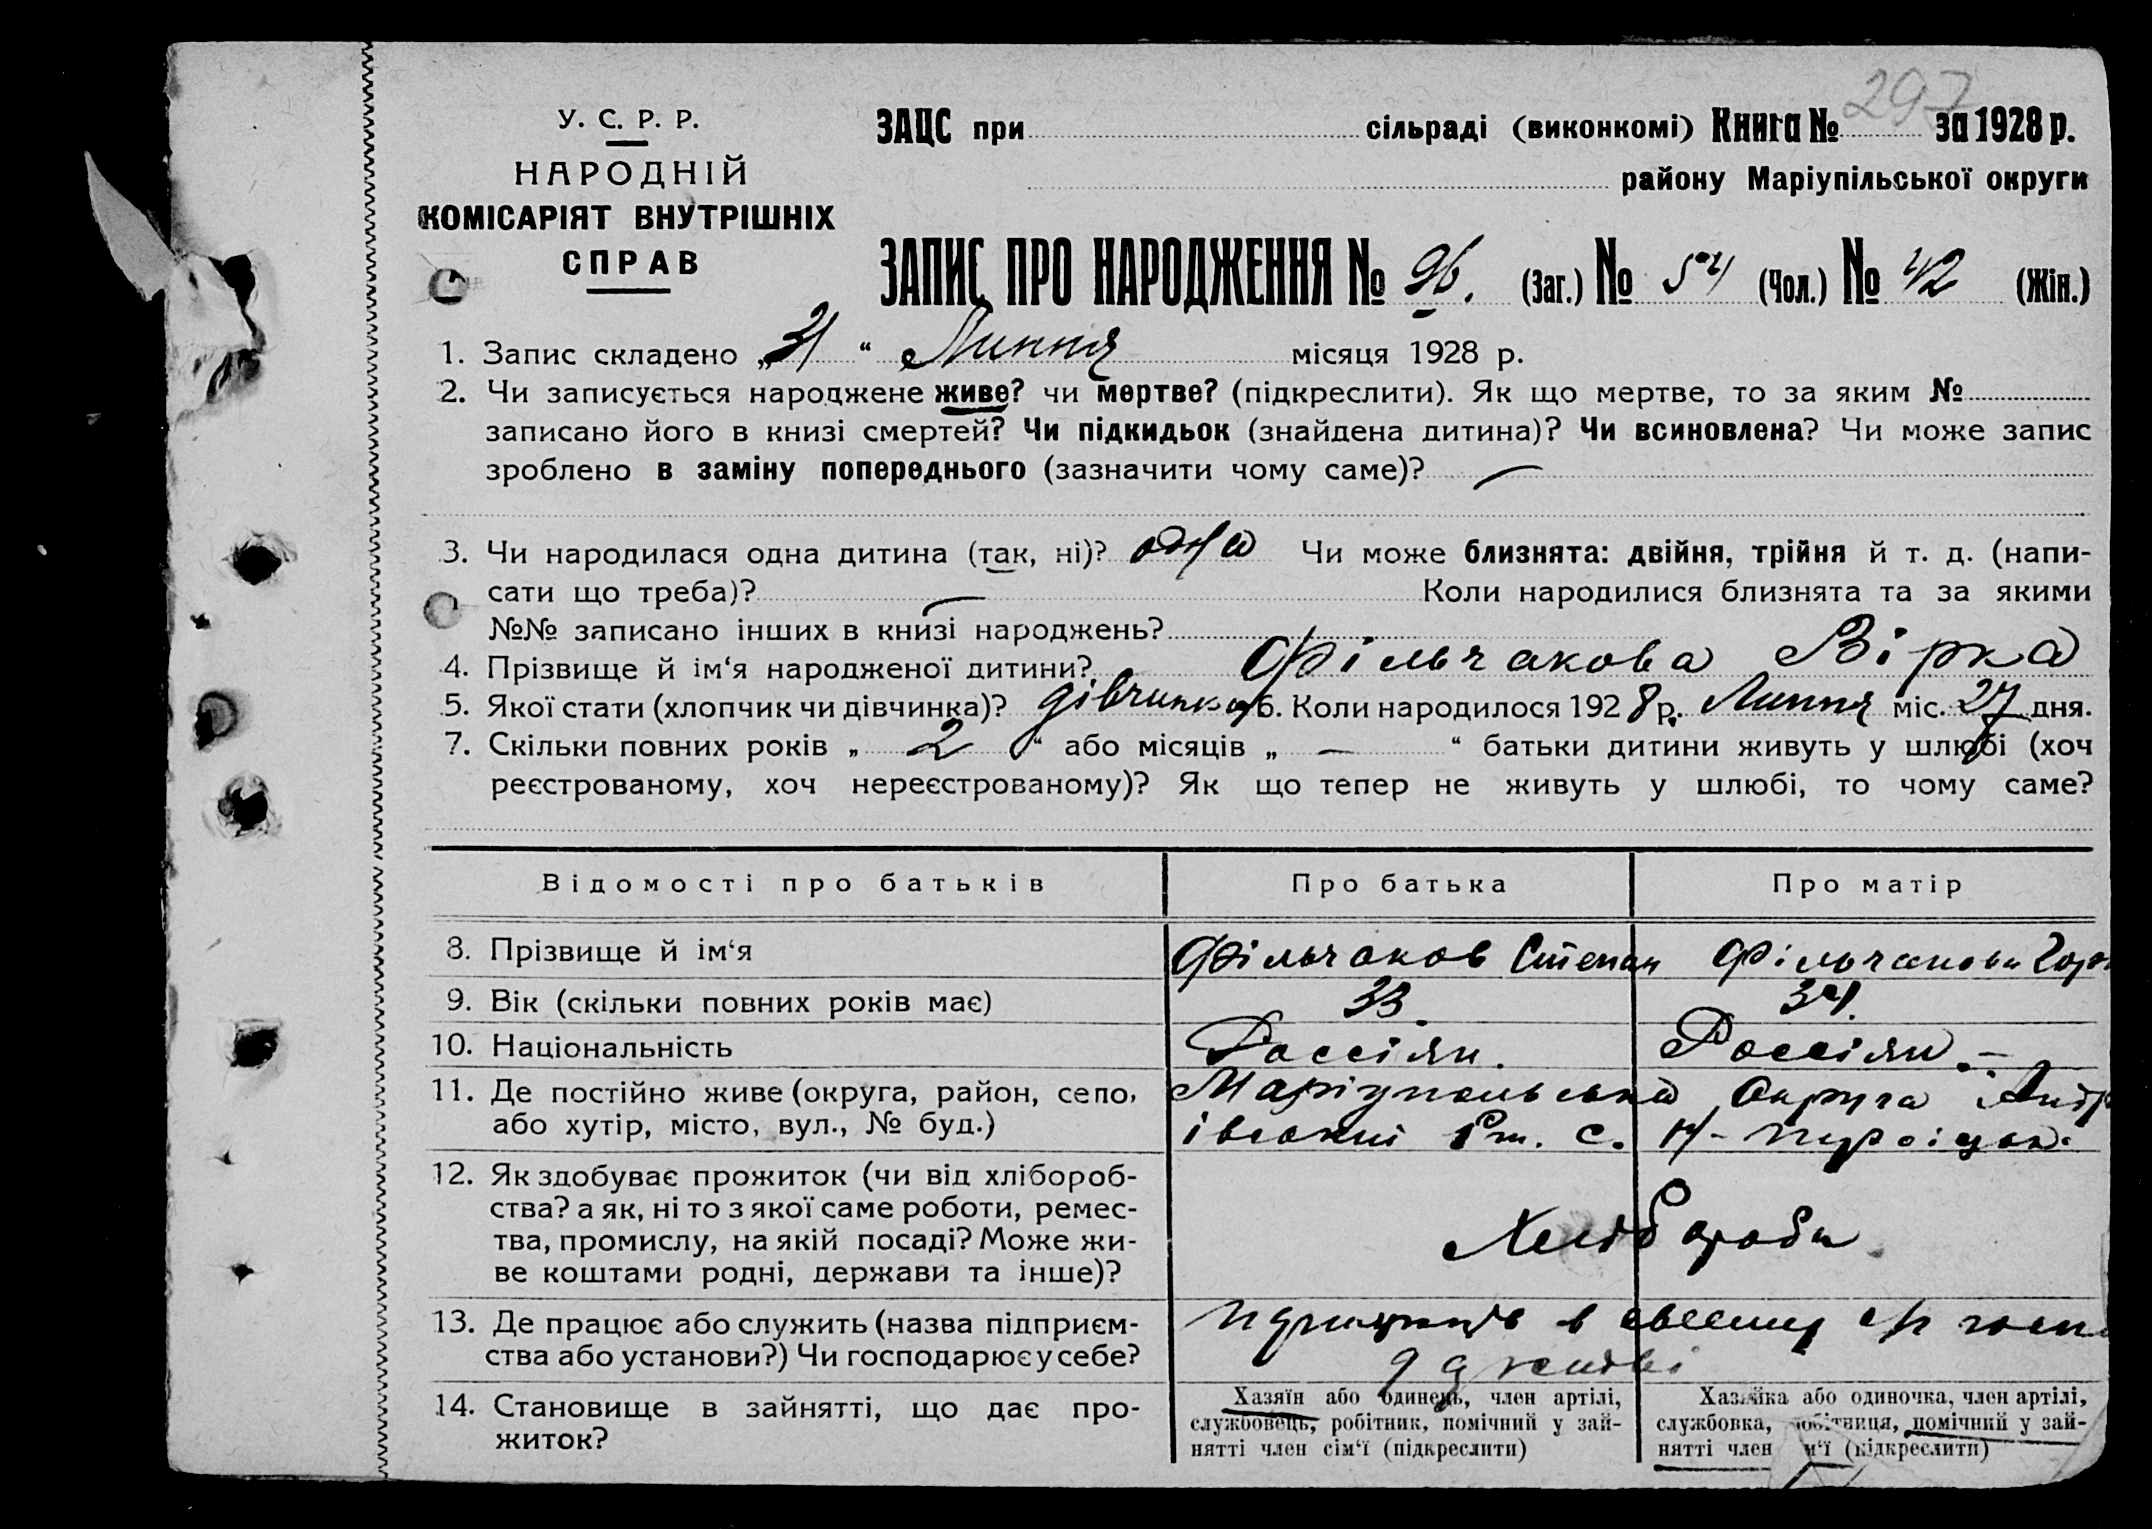 297
У. С. Р. Р.
НАРОДНІЙ
КОМІСАРІЯТ ВНУТРІШНІХ
СПРАВ
ЗАЦС при сільраді (виконкомі) Книга № за 1928 р.
району Маріупільської округи
ЗАПИС ПРО НАРОДЖЕННЯ № 96. (Заг.) № 54 (Чол.) № 42 (Жін.)
1. Запис складено „31“ Липня місяця 1928 р.
2. Чи записується народжене живе? чи мертве? (підкреслити). Як що мертве, то за яким №
записано його в книзі смертей? Чи підкидьок (знайдена дитина)? Чи всиновлена? Чи може запис
зроблено в заміну попереднього (зазначити чому саме)? —
3. Чи народилася одна дитина (так, ні)? одна Чи може близнята: двійня, трійня й т. д. (напи-
сати що треба)? — Коли народилися близнята та за якими
№№ записано інших в книзі народжень?
4. Прізвище й ім‘я народженої дитини? Фільчакова Вірка
5. Якої стати (хлопчик чи дівчинка)? дівчинка 6. Коли народилося 1928 р. Липня міс. 27 дня.
7. Скільки повних років „ 2 “ або місяців „ — “ батьки дитини живуть у шлюбі (хоч
реєстрованому, хоч нереєстрованому)? Як що тепер не живуть у шлюбі, то чому саме?
Відомості про батьків Про батька Про матір
8. Прізвище й ім‘я Фільчаков Степан Фільчакова
9. Вік (скільки повних років має) 33 34.
10. Національність Россіян. Россіян. —
11. Де постійно живе (округа, район, село, Маріупольська Округа Андр
або хутір, місто, вул., № буд.) івський с.
12. Як здобуває прожиток (чи від хлібороб-
ства? а як, ні то з якої саме роботи, ремес-
тва, промислу, на якій посаді? Може жи-
ве коштами родні, держави та інше)?
Хлібороби.
13. Де працює або служить (назва підприєм- в
ства або установи?) Чи господарює у себе?
14. Становище в зайнятті, що дає про-
житок?
Хазяїн або одинець, член артілі,
службовець, робітник, помічний у зай-
нятті член сім‘ї (підкреслити)
Хазяйка або одиночка, член артілі,
службовка, робітниця, помічний у зай-
нятті член сім‘ї (підкреслити)